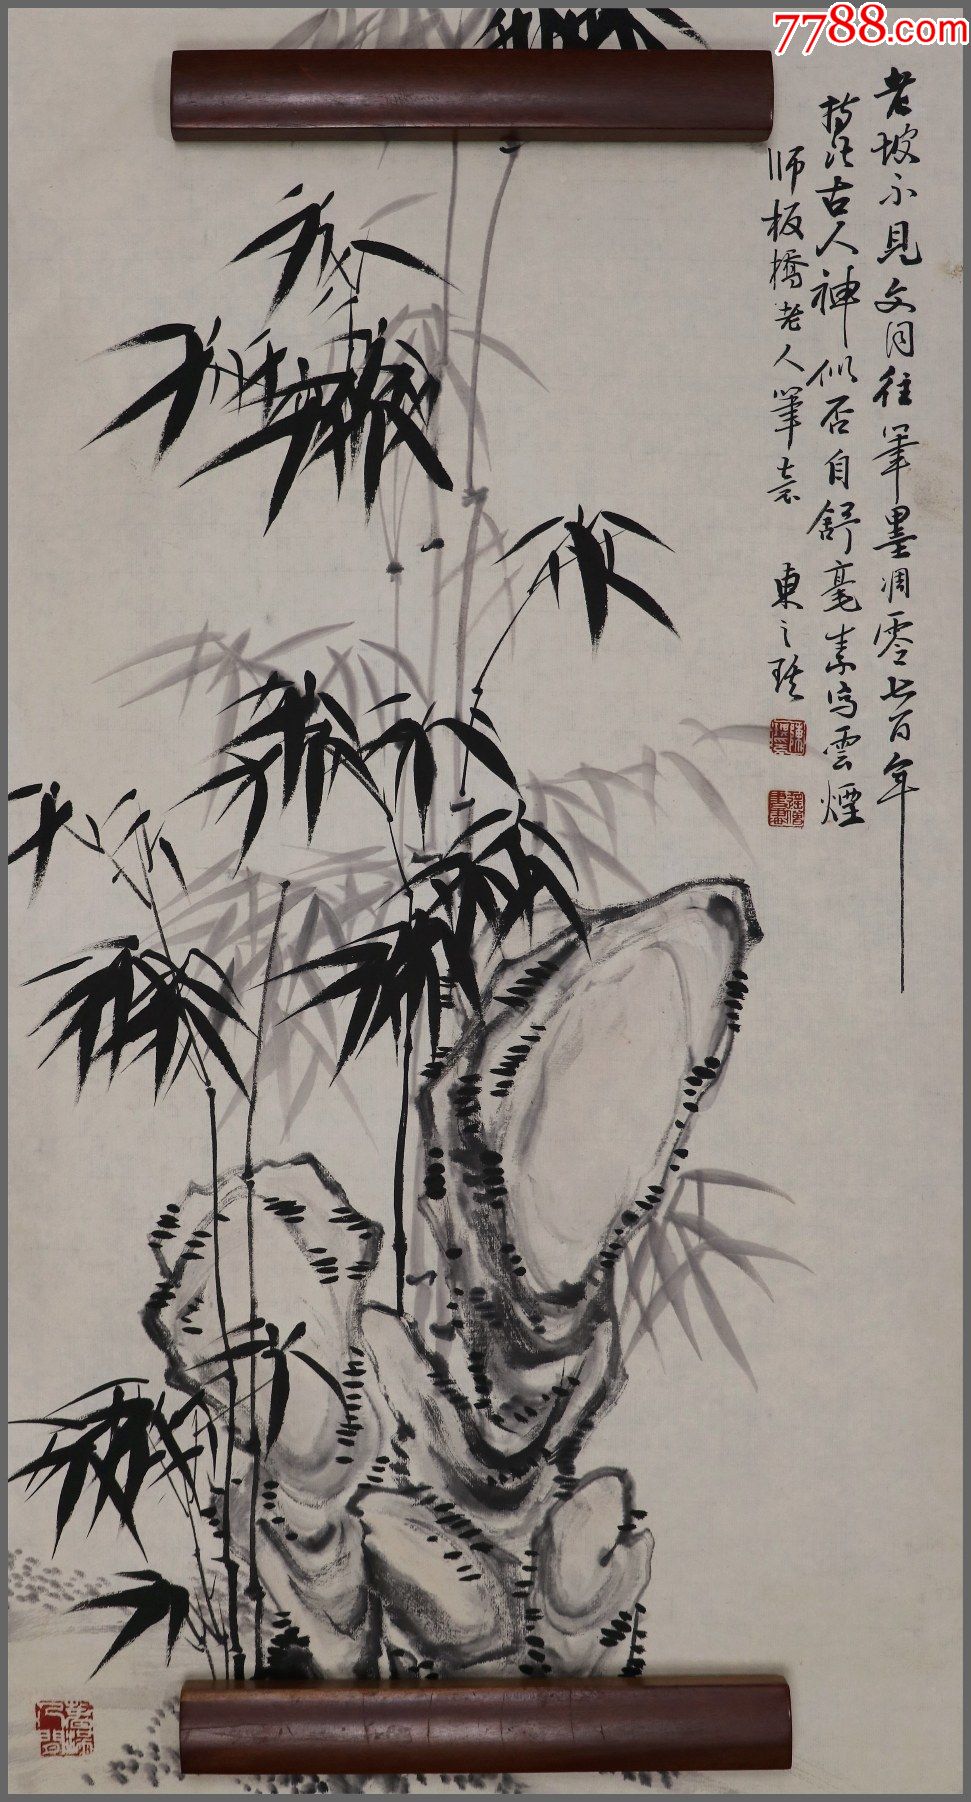 7788.com
老坡不見文同往筆墨凋零七百年
持比古人神似否自舒毫素寫雲煙
師板橋老人筆意 東之